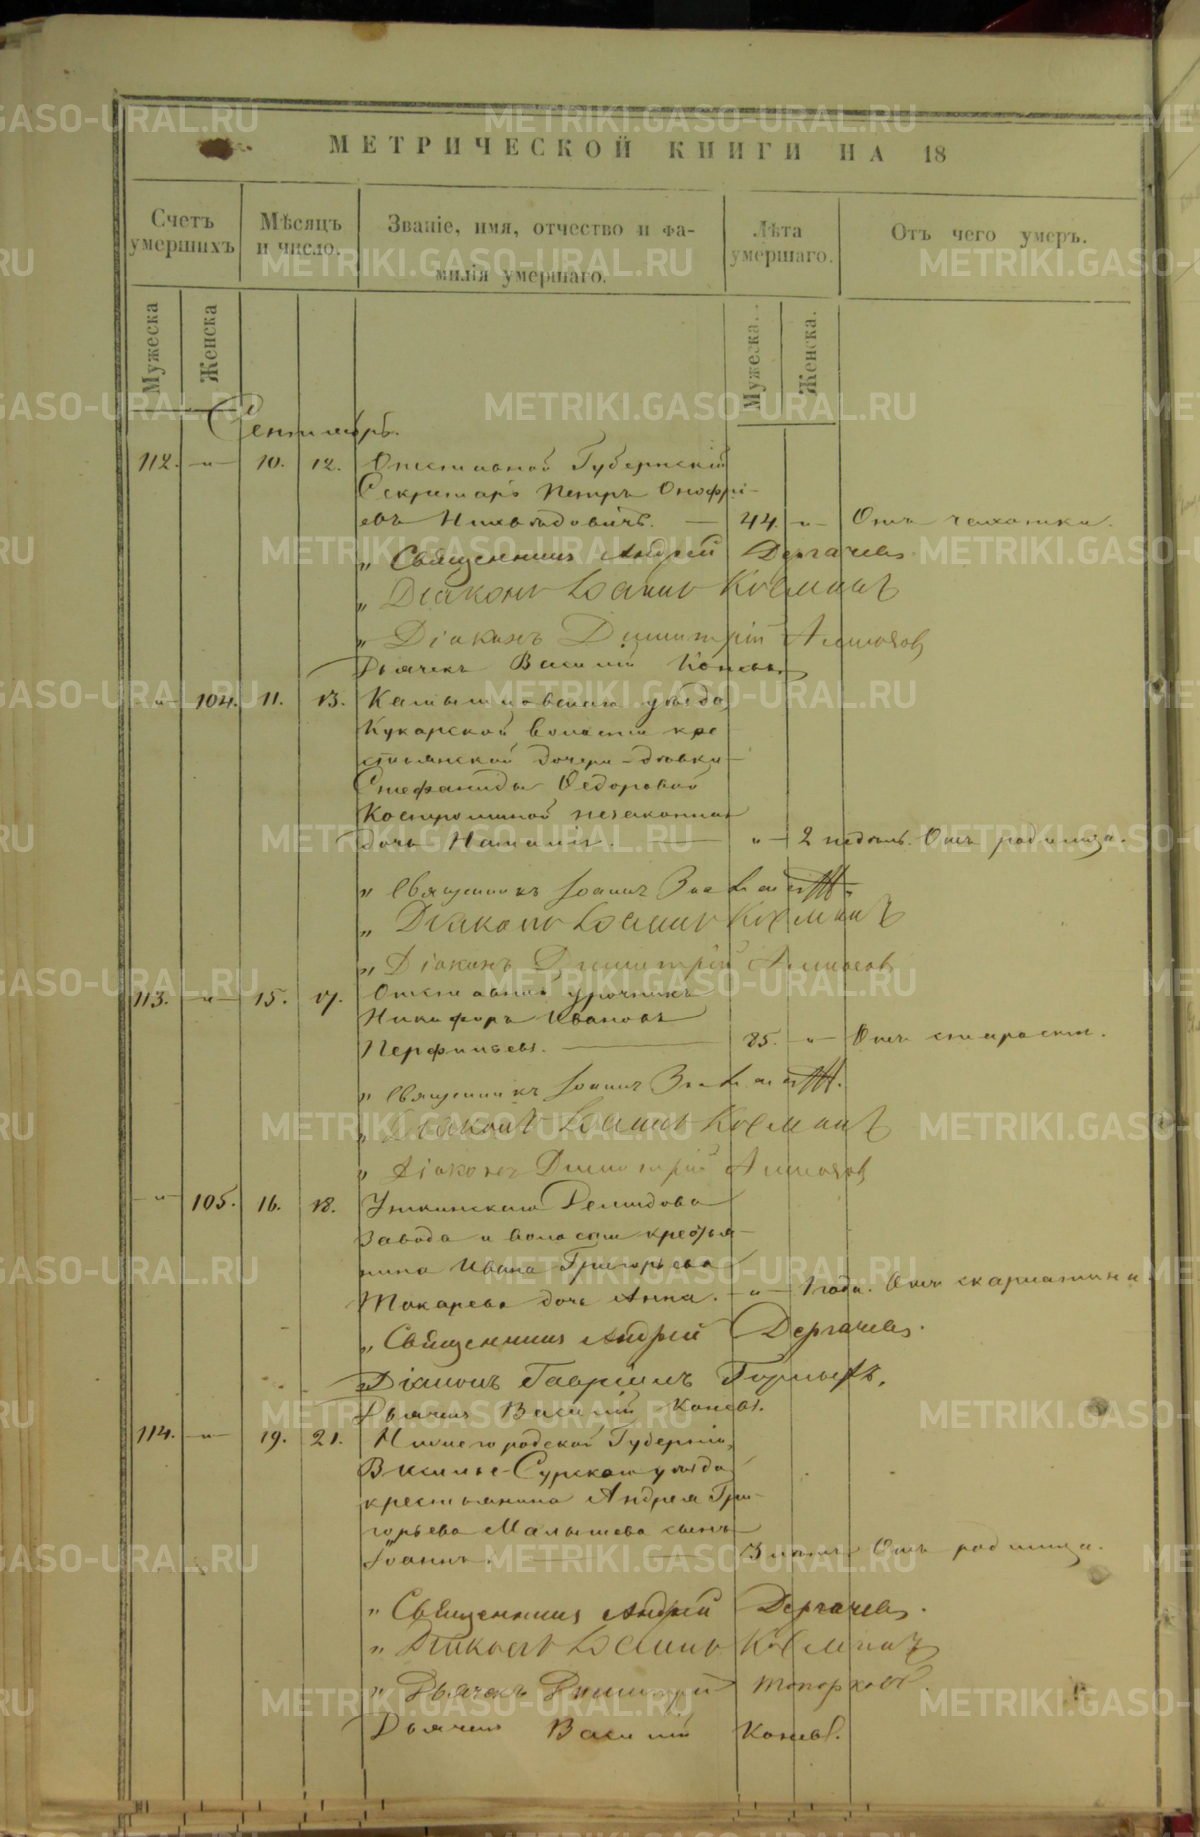 МЕТРИЧЕСКОЙ КНИГИ НА 18
Счетъ умершихъ
Мѣсяцъ и число.
Званіе, имя, отчество и фамилія умершаго.
Лѣта умершаго.
Отъ чего умеръ.
Мужеска
Женска
Мужеска.
Женска.
Сентябрь.
112. -"- 10. 12. Отставной Губернскій
Секретарь Петръ Онофрі-
евъ 44. -"- Отъ чахотки.
" Священникъ Андрей Дергачевъ
" Діаконъ Іоаннъ Космин
" Діаконъ Димитрій
Дьячекъ Василій Коневъ.
-"- 104. 11. 13. Камышловскаго уѣзда,
Кукарской волости кре
стьянской дочери-дѣвки
Стефаниды Ѳедоровой
незаконная
дочь Наталія. " 2 недѣль. Отъ родимца.
" Священникъ Іоаннъ
" Діаконъ Іоаннъ Космин
" Діаконъ Димитрій
113. -"- 15. 17. Отставной урочникъ
Никифоръ Ивановъ
Перфильевъ. 85. -"- Отъ старости.
" Священникъ Іоаннъ
" Діаконъ Іоаннъ Космин
" Діаконъ Димитрій
-"- 105. 16. 18. Уткинскаго Демидова
завода и волости крестья-
нина Ивана Григорьева
Токарева дочь Анна. -"- 1 года. Отъ скарлатины
" Священникъ Андрей Дергачевъ.
Діаконъ Гавріилъ
Дьячекъ Василій Коневъ.
114. -"- 19. 21. Нижегородской Губерніи,
Василье-Сурскаго уѣзда
крестьянина Андрея Гри-
горьева Малышева сынъ
Іоаннъ. 3 Отъ родимца.
" Священникъ Андрей Дергачевъ.
" Діаконъ Іоаннъ Космин
" Дьячекъ Димитрій Топорковъ.
Дьячекъ Василій Коневъ.
METRIKI.GASO-URAL.RU